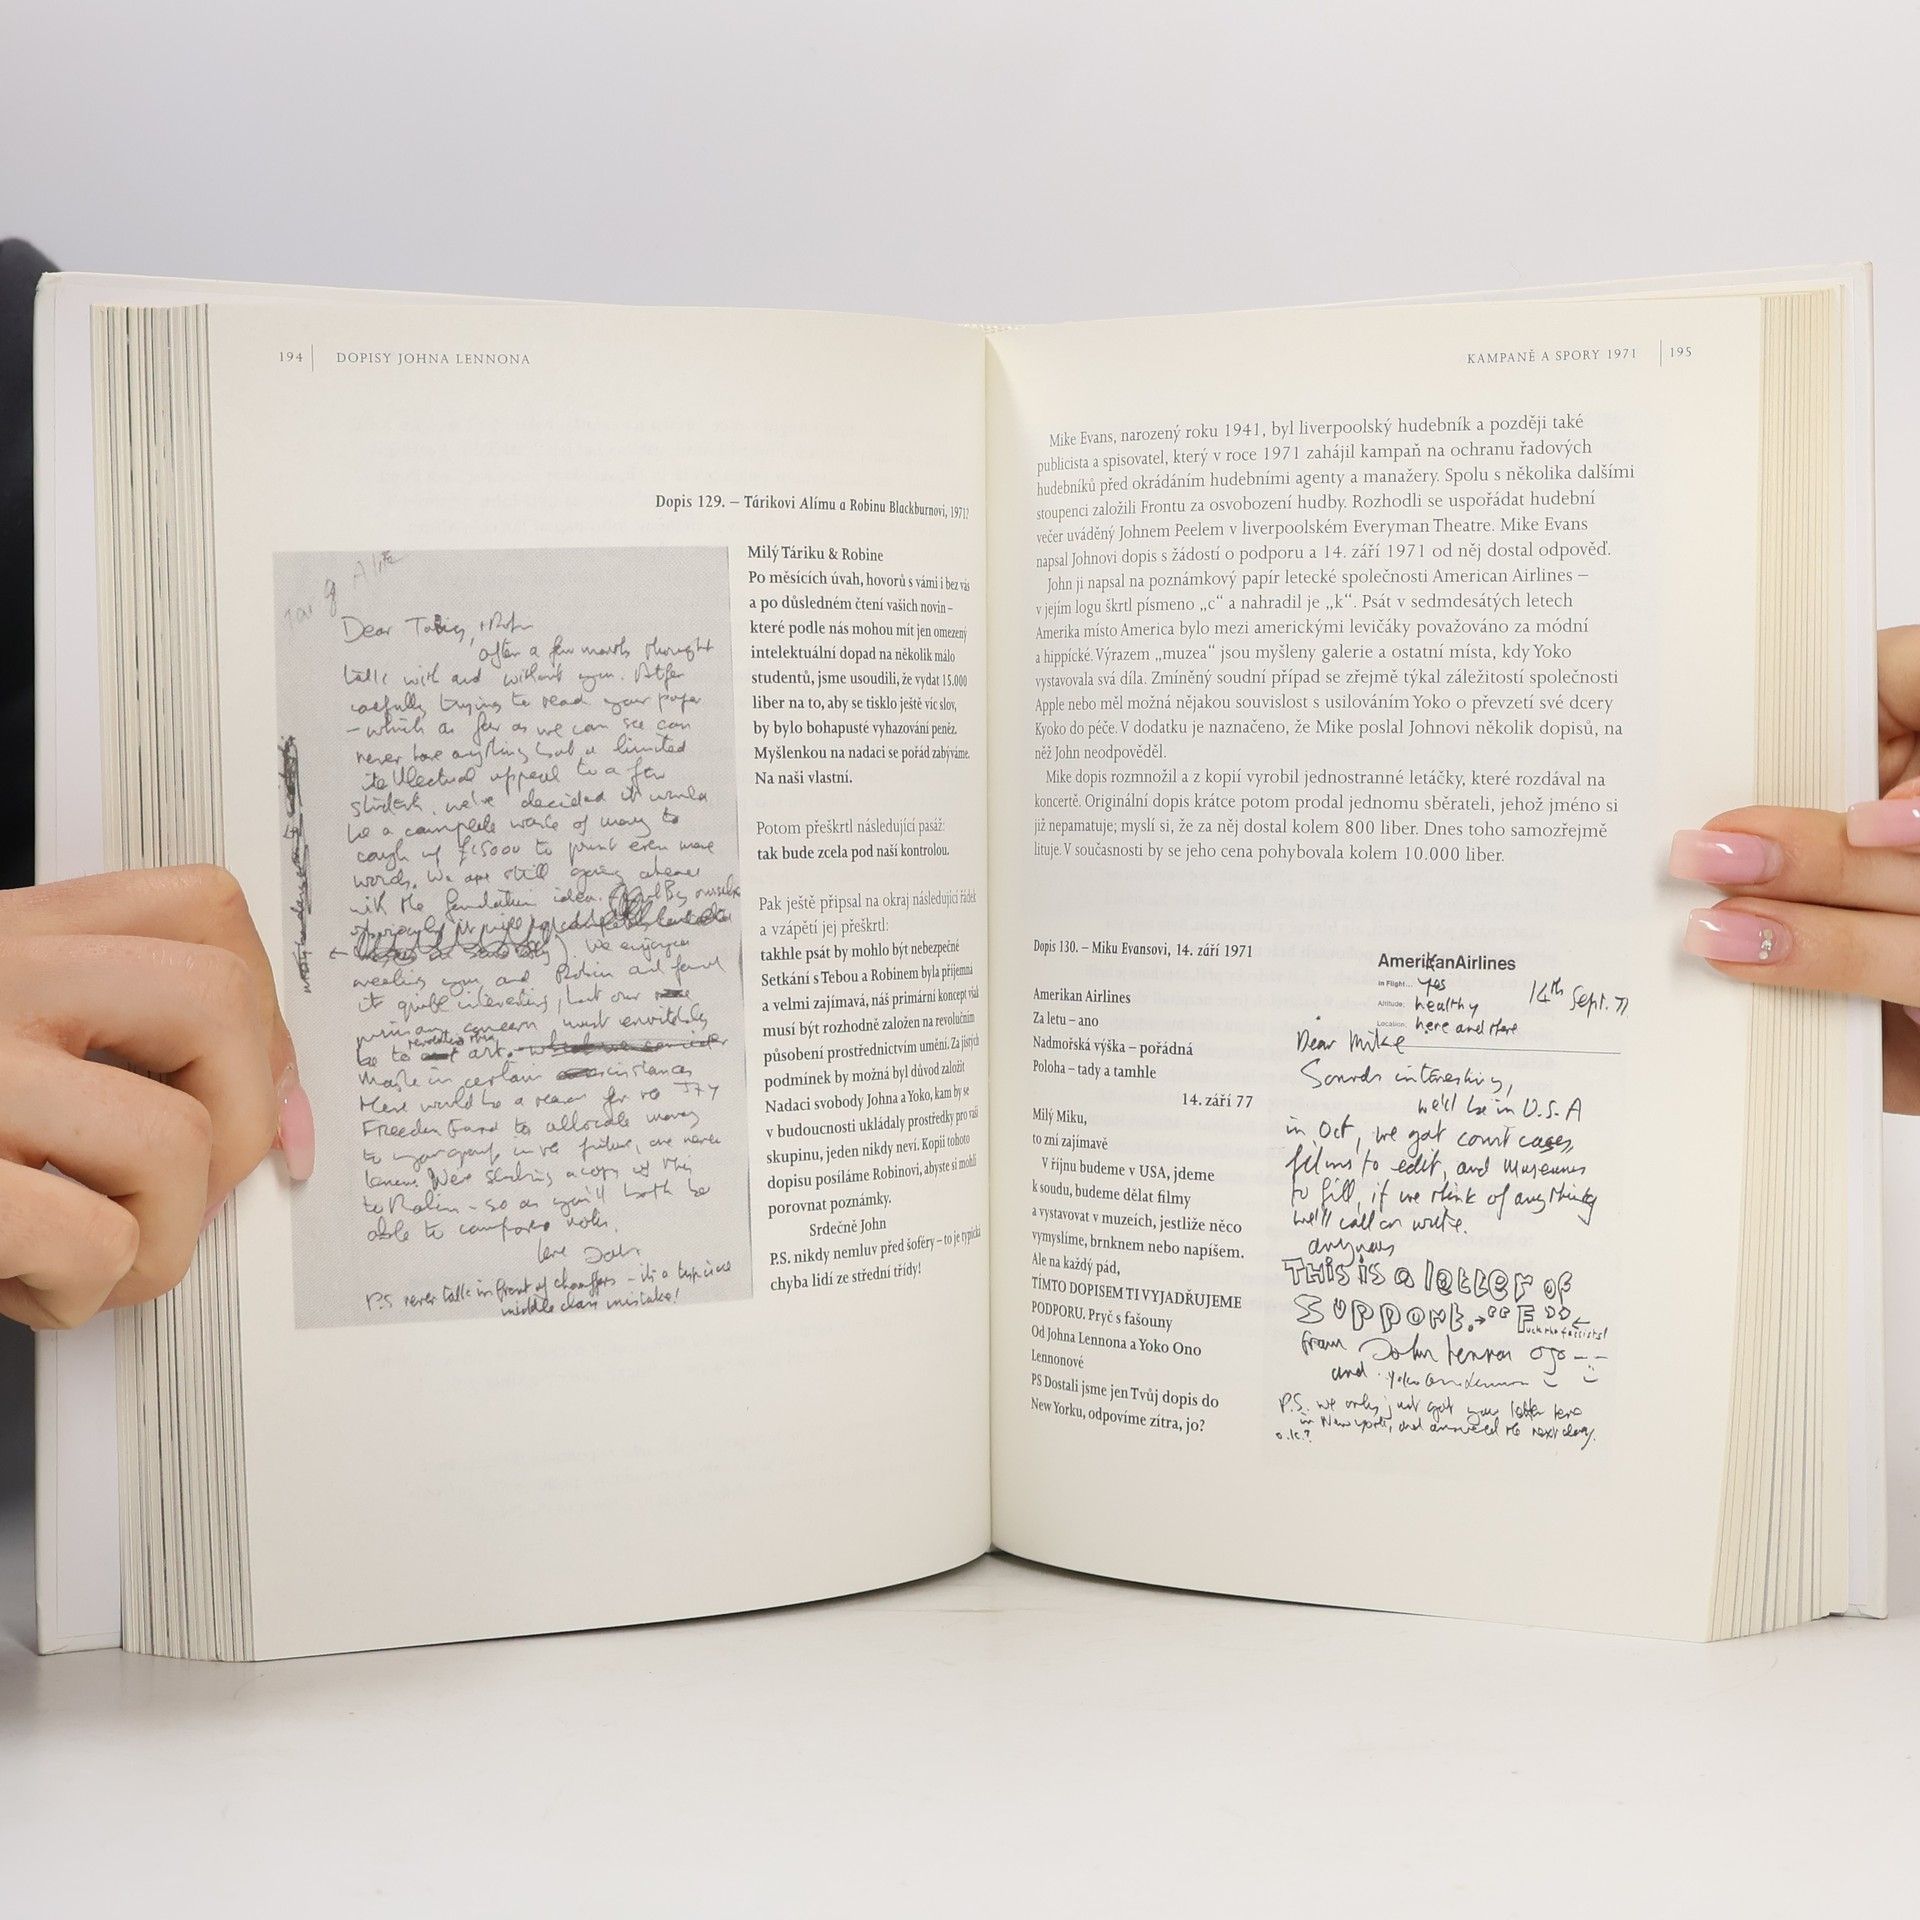 194 DOPISY JOHNA LENNONA
Dopis 129. – Tárikovi Alímu a Robinu Blackburnovi, 1971?
Dear
after a few months thought
talk with and without you. After
carefully trying to read your paper
– which as far as we can see can
never have anything but a limited
intellectual appeal to a few
students, we've decided it would
be a complete waste of money to
cough up £15000 to print even more
words. We are still going ahead
with the foundation idea. By ourselves
We enjoyed
meeting you, and Robin and found
it quite interesting, but our
primary concern must
be to art.
Maybe in certain
there would be a reason for
Freedom Fund to allocate money
to your group in the future, one never
knows. We're sending a copy of this
to Robin – so as you'll both be
able to compare notes.
love John
P.S never talk in front of chauffers – its a typical
middle class mistake!
Milý Táriku & Robine
Po měsících úvah, hovorů s vámi i bez vás
a po důsledném čtení vašich novin –
které podle nás mohou mít jen omezený
intelektuální dopad na několik málo
studentů, jsme usoudili, že vydat 15.000
liber na to, aby se tisklo ještě víc slov,
by bylo bohapusté vyhazování peněz.
Myšlenkou na nadaci se pořád zabýváme.
Na naši vlastní.
Potom přeškrtl následující pasáž:
tak bude zcela pod naší kontrolou.
Pak ještě připsal na okraj následující řádek
a vzápětí jej přeškrtl:
takhle psát by mohlo být nebezpečné
Setkání s Tebou a Robinem byla příjemná
a velmi zajímavá, náš primární koncept však
musí být rozhodně založen na revolučním
působení prostřednictvím umění. Za jistých
podmínek by možná byl důvod založit
Nadaci svobody Johna a Yoko, kam by se
v budoucnosti ukládaly prostředky pro vaši
skupinu, jeden nikdy neví. Kopii tohoto
dopisu posíláme Robinovi, abyste si mohli
porovnat poznámky.
Srdečně John
P.S. nikdy nemluv před šoféry – to je typická
chyba lidí ze střední třídy!
KAMPANĚ A SPORY 1971 195
Mike Evans, narozený roku 1941, byl liverpoolský hudebník a později také
publicista a spisovatel, který v roce 1971 zahájil kampaň na ochranu řadových
hudebníků před okrádáním hudebními agenty a manažery. Spolu s několika dalšími
stoupenci založili Frontu za osvobození hudby. Rozhodli se uspořádat hudební
večer uváděný Johnem Peelem v liverpoolském Everyman Theatre. Mike Evans
napsal Johnovi dopis s žádostí o podporu a 14. září 1971 od něj dostal odpověď.
John ji napsal na poznámkový papír letecké společnosti American Airlines –
v jejím logu škrtl písmeno „c“ a nahradil je „k“. Psát v sedmdesátých letech
Amerika místo America bylo mezi americkými levičáky považováno za módní
a hippícké. Výrazem „muzea“ jsou myšleny galerie a ostatní místa, kdy Yoko
vystavovala svá díla. Zmíněný soudní případ se zřejmě týkal záležitostí společnosti
Apple nebo měl možná nějakou souvislost s usilováním Yoko o převzetí své dcery
Kyoko do péče. V dodatku je naznačeno, že Mike poslal Johnovi několik dopisů, na
něž John neodpověděl.
Mike dopis rozmnožil a z kopií vyrobil jednostranné letáčky, které rozdával na
koncertě. Originální dopis krátce potom prodal jednomu sběrateli, jehož jméno si
již nepamatuje; myslí si, že za něj dostal kolem 800 liber. Dnes toho samozřejmě
lituje. V současnosti by se jeho cena pohybovala kolem 10.000 liber.
Dopis 130. – Miku Evansovi, 14. září 1971
Amerikan Airlines
Za letu – ano
Nadmořská výška – pořádná
Poloha – tady a tamhle
14. září 77
Milý Miku,
to zní zajímavě
V říjnu budeme v USA, jdeme
k soudu, budeme dělat filmy
a vystavovat v muzeích, jestliže něco
vymyslíme, brnknem nebo napíšem.
Ale na každý pád,
TÍMTO DOPISEM TI VYJADŘUJEME
PODPORU. Pryč s fašouny
Od Johna Lennona a Yoko Ono
Lennonové
PS Dostali jsme jen Tvůj dopis do
New Yorku, odpovíme zítra, jo?
AmeriKanAirlines
In Flight... yes
Altitude: healthy
Location: here and there
14th Sept. 71
Dear Mike
Sounds interesting,
we'll be in U.S.A
in Oct, we got court cases,
films to edit, and Museums
to fill, if we think of anything
we'll call or write.
anyway
THiS iS a letter of
SUPPORT. → “F” ←
uck the fascists!
from John Lennon
and Yoko Ono Lennon
P.S. we only just got your letter here
in New York, and answered the next day.
o.k.?